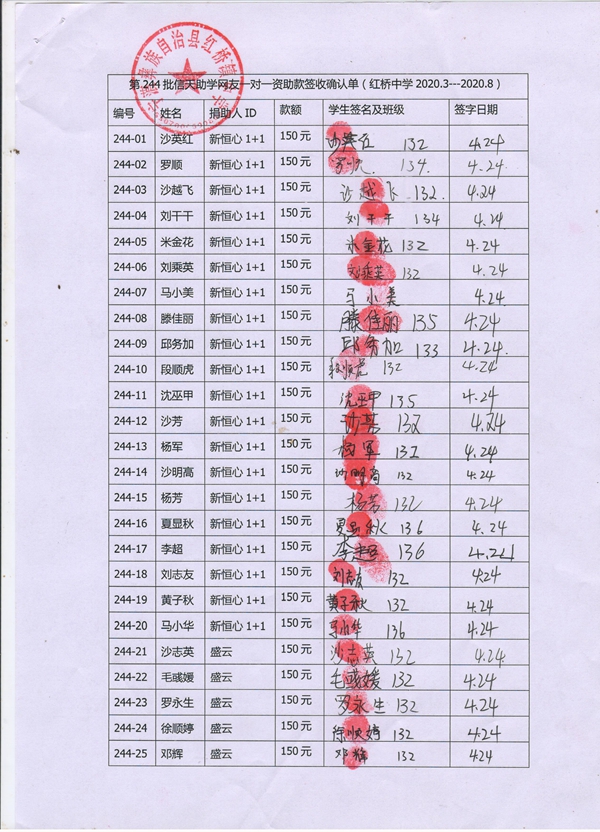 宁蒗彝族自治县红桥镇
第244批信天助学网友一对一资助款签收确认单（红桥中学2020.3---2020.8）
编号 姓名 捐助人ID 款额 学生签名及班级 签字日期
244-01 沙英红 新恒心1+1 150元 沙英红 132 4.24
244-02 罗顺 新恒心1+1 150元 罗顺. 134. 4.24
244-03 沙越飞 新恒心1+1 150元 沙越飞 132. 4.24
244-04 刘干干 新恒心1+1 150元 刘干干 134 4.24
244-05 米金花 新恒心1+1 150元 米金花 132 4.24
244-06 刘乘英 新恒心1+1 150元 刘乘英 132 4.24
244-07 马小美 新恒心1+1 150元 马小美 4.24
244-08 滕佳丽 新恒心1+1 150元 滕佳丽 135 4.24
244-09 邱务加 新恒心1+1 150元 邱务加 133 4.24.
244-10 段顺虎 新恒心1+1 150元 段顺虎 132 4.24
244-11 沈巫甲 新恒心1+1 150元 沈巫甲 135 4.24
244-12 沙芳 新恒心1+1 150元 沙芳 132 4.24
244-13 杨军 新恒心1+1 150元 杨军 132 4.24
244-14 沙明高 新恒心1+1 150元 沙明高 132 4.24
244-15 杨芳 新恒心1+1 150元 杨芳 132 4.24
244-16 夏显秋 新恒心1+1 150元 夏显秋 136 4.24
244-17 李超 新恒心1+1 150元 李超 136 4.24
244-18 刘志友 新恒心1+1 150元 刘志友 132 4.24
244-19 黄子秋 新恒心1+1 150元 黄子秋 132 4.24
244-20 马小华 新恒心1+1 150元 马小华 136 4.24
244-21 沙志英 盛云 150元 沙志英 132 4.24
244-22 毛彧媛 盛云 150元 毛彧媛 132 4.24
244-23 罗永生 盛云 150元 罗永生 132 4.24
244-24 徐顺婷 盛云 150元 徐顺婷 132 4.24
244-25 邓辉 盛云 150元 邓辉 132 4.24